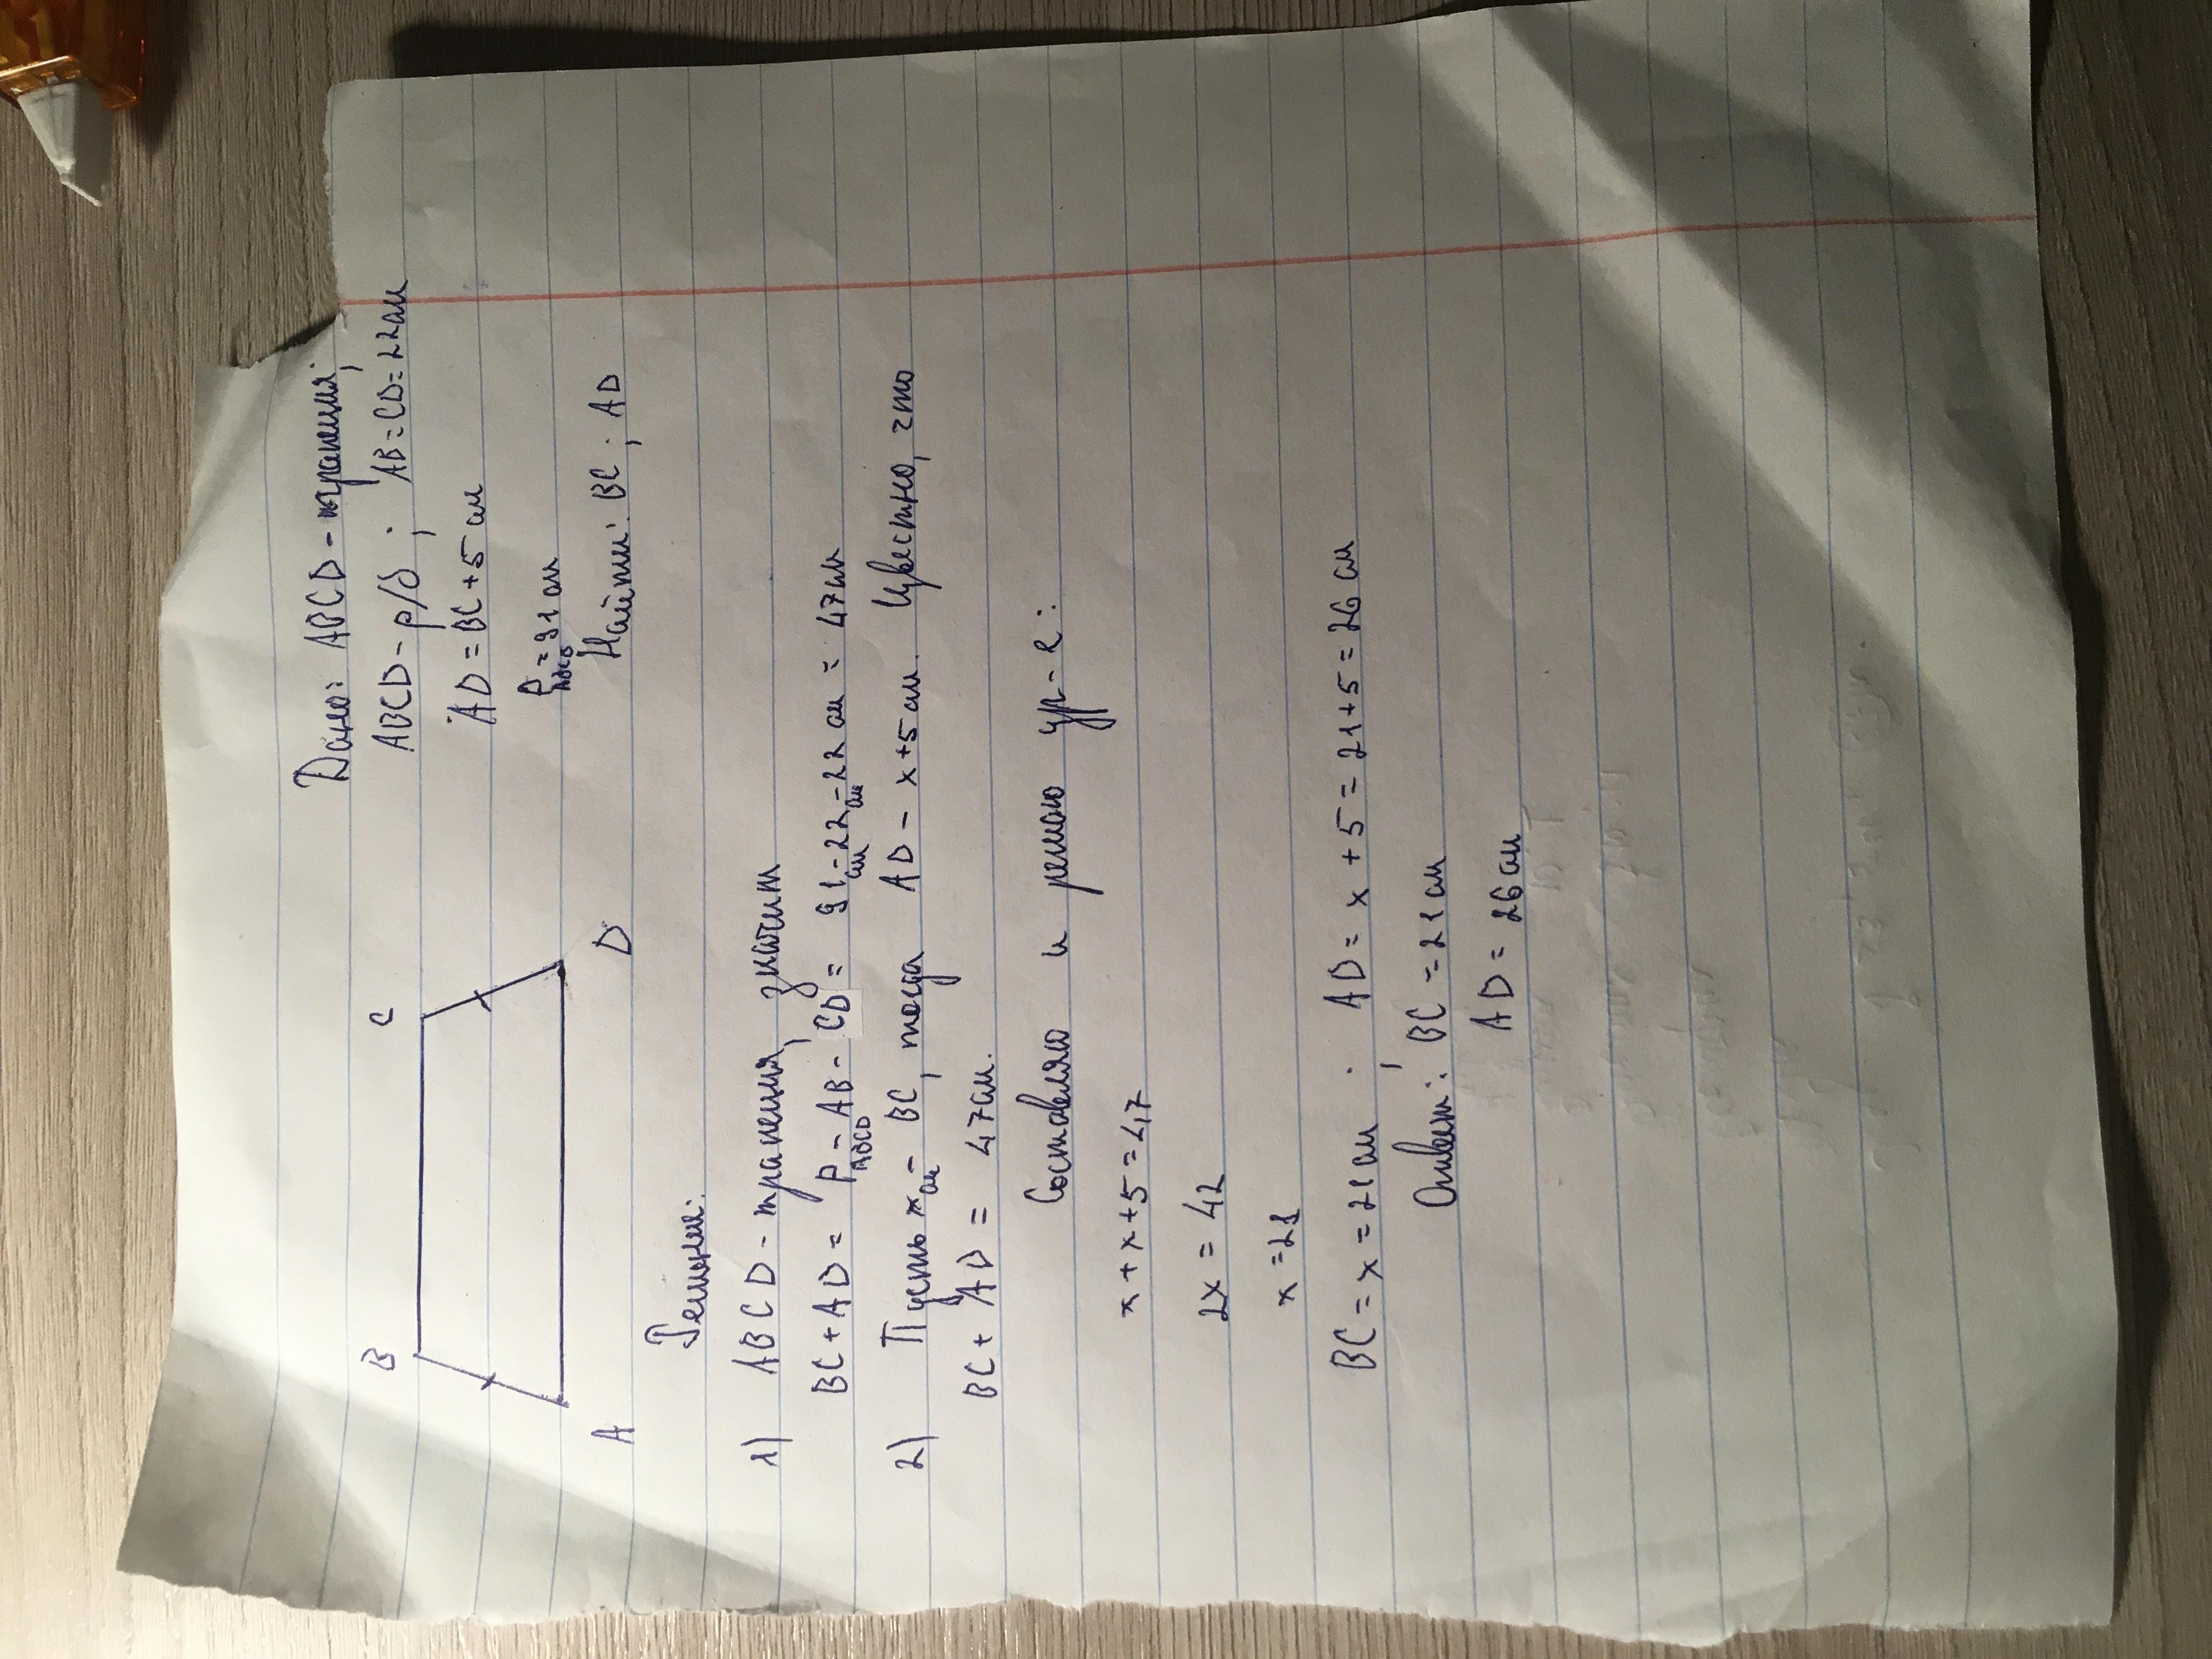 B C
A D
Дано: ABCD - трапеция;
ABCD - р/б; AB = CD = 22 см
AD = BC + 5 см
P ABCD = 91 см
Найти: BC; AD
Решение:
1) ABCD - трапеция, значит
BC + AD = P ABCD - AB - CD = 91 см - 22 см - 22 см = 47 см
2) Пусть x см - BC, тогда AD - x + 5 см. Известно, что
BC + AD = 47 см.
Составляю и решаю ур-е:
x + x + 5 = 47
2x = 42
x = 21
BC = x = 21 см; AD = x + 5 = 21 + 5 = 26 см
Ответ: BC = 21 см
AD = 26 см